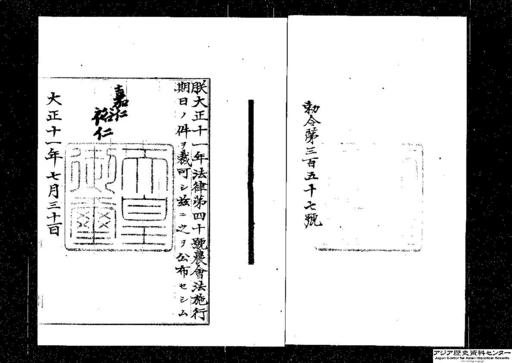 勅令第三百五十七號
朕大正十一年法律第四十號農會法施行
期日ノ件ヲ裁可シ茲ニ之ヲ公布セシム
嘉仁
裕仁
天皇
御璽
大正十一年七月三十一日
アジア歴史資料センター
Japan Center for Asian Historical Records